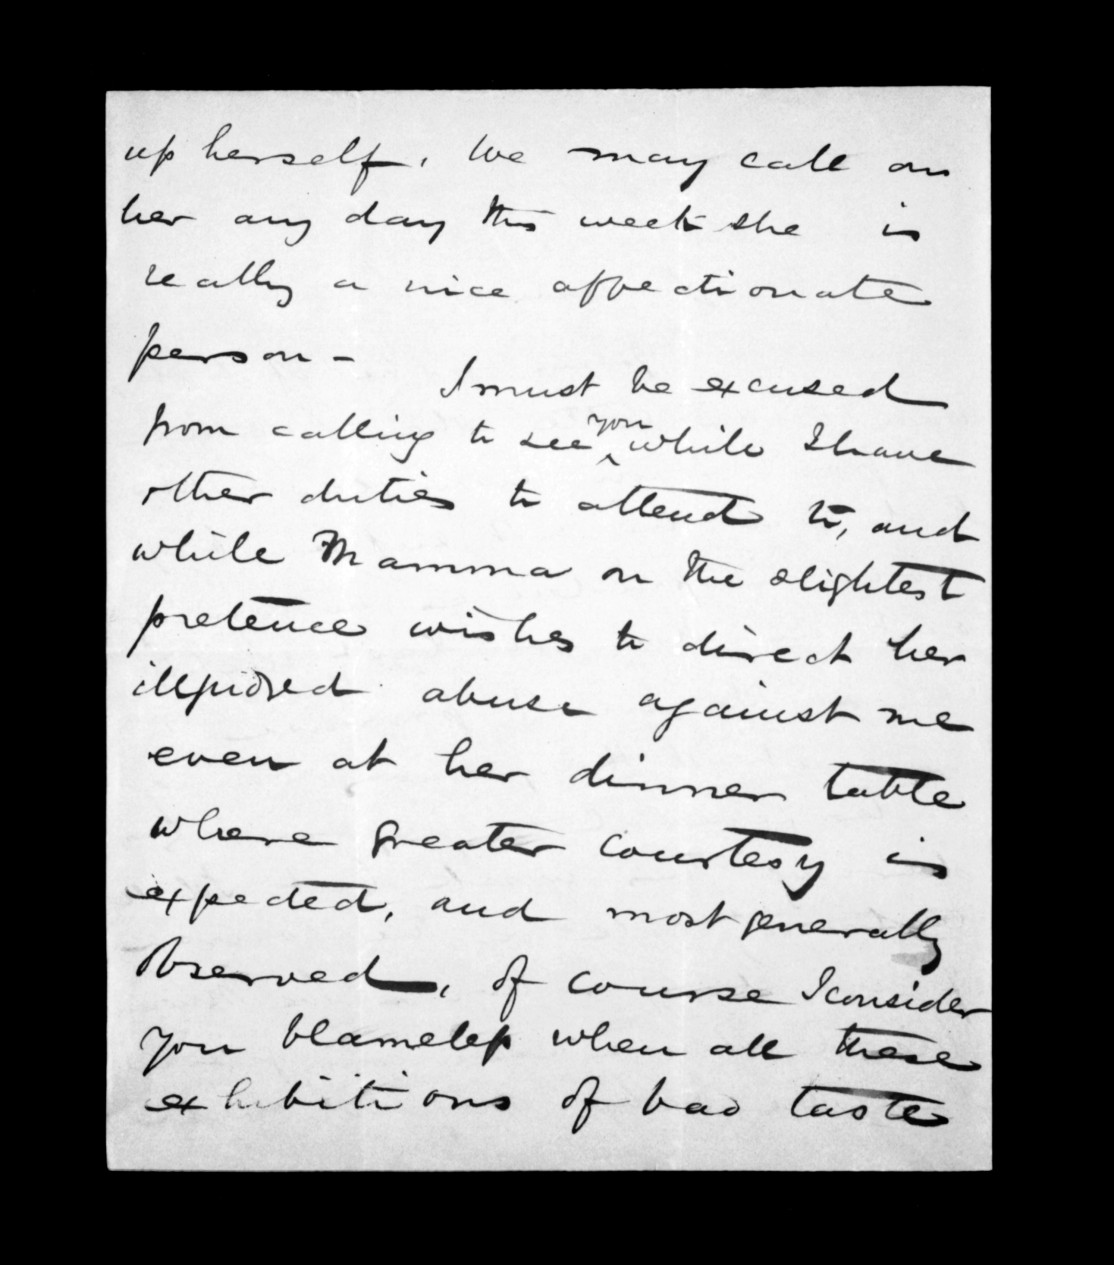 up herself, We may call on
her any day this week she is
really a nice affectionate
person -
I must be excused
from calling to see you while I have
other duties to attend to, and
while Mamma on the slightest
pretence wishes to direct her
abuse against me
even at her dinner table
where greater courtesy is
expected, and most generally
observed, of course I consider
you blameless when all these
exhibitions of bad taste